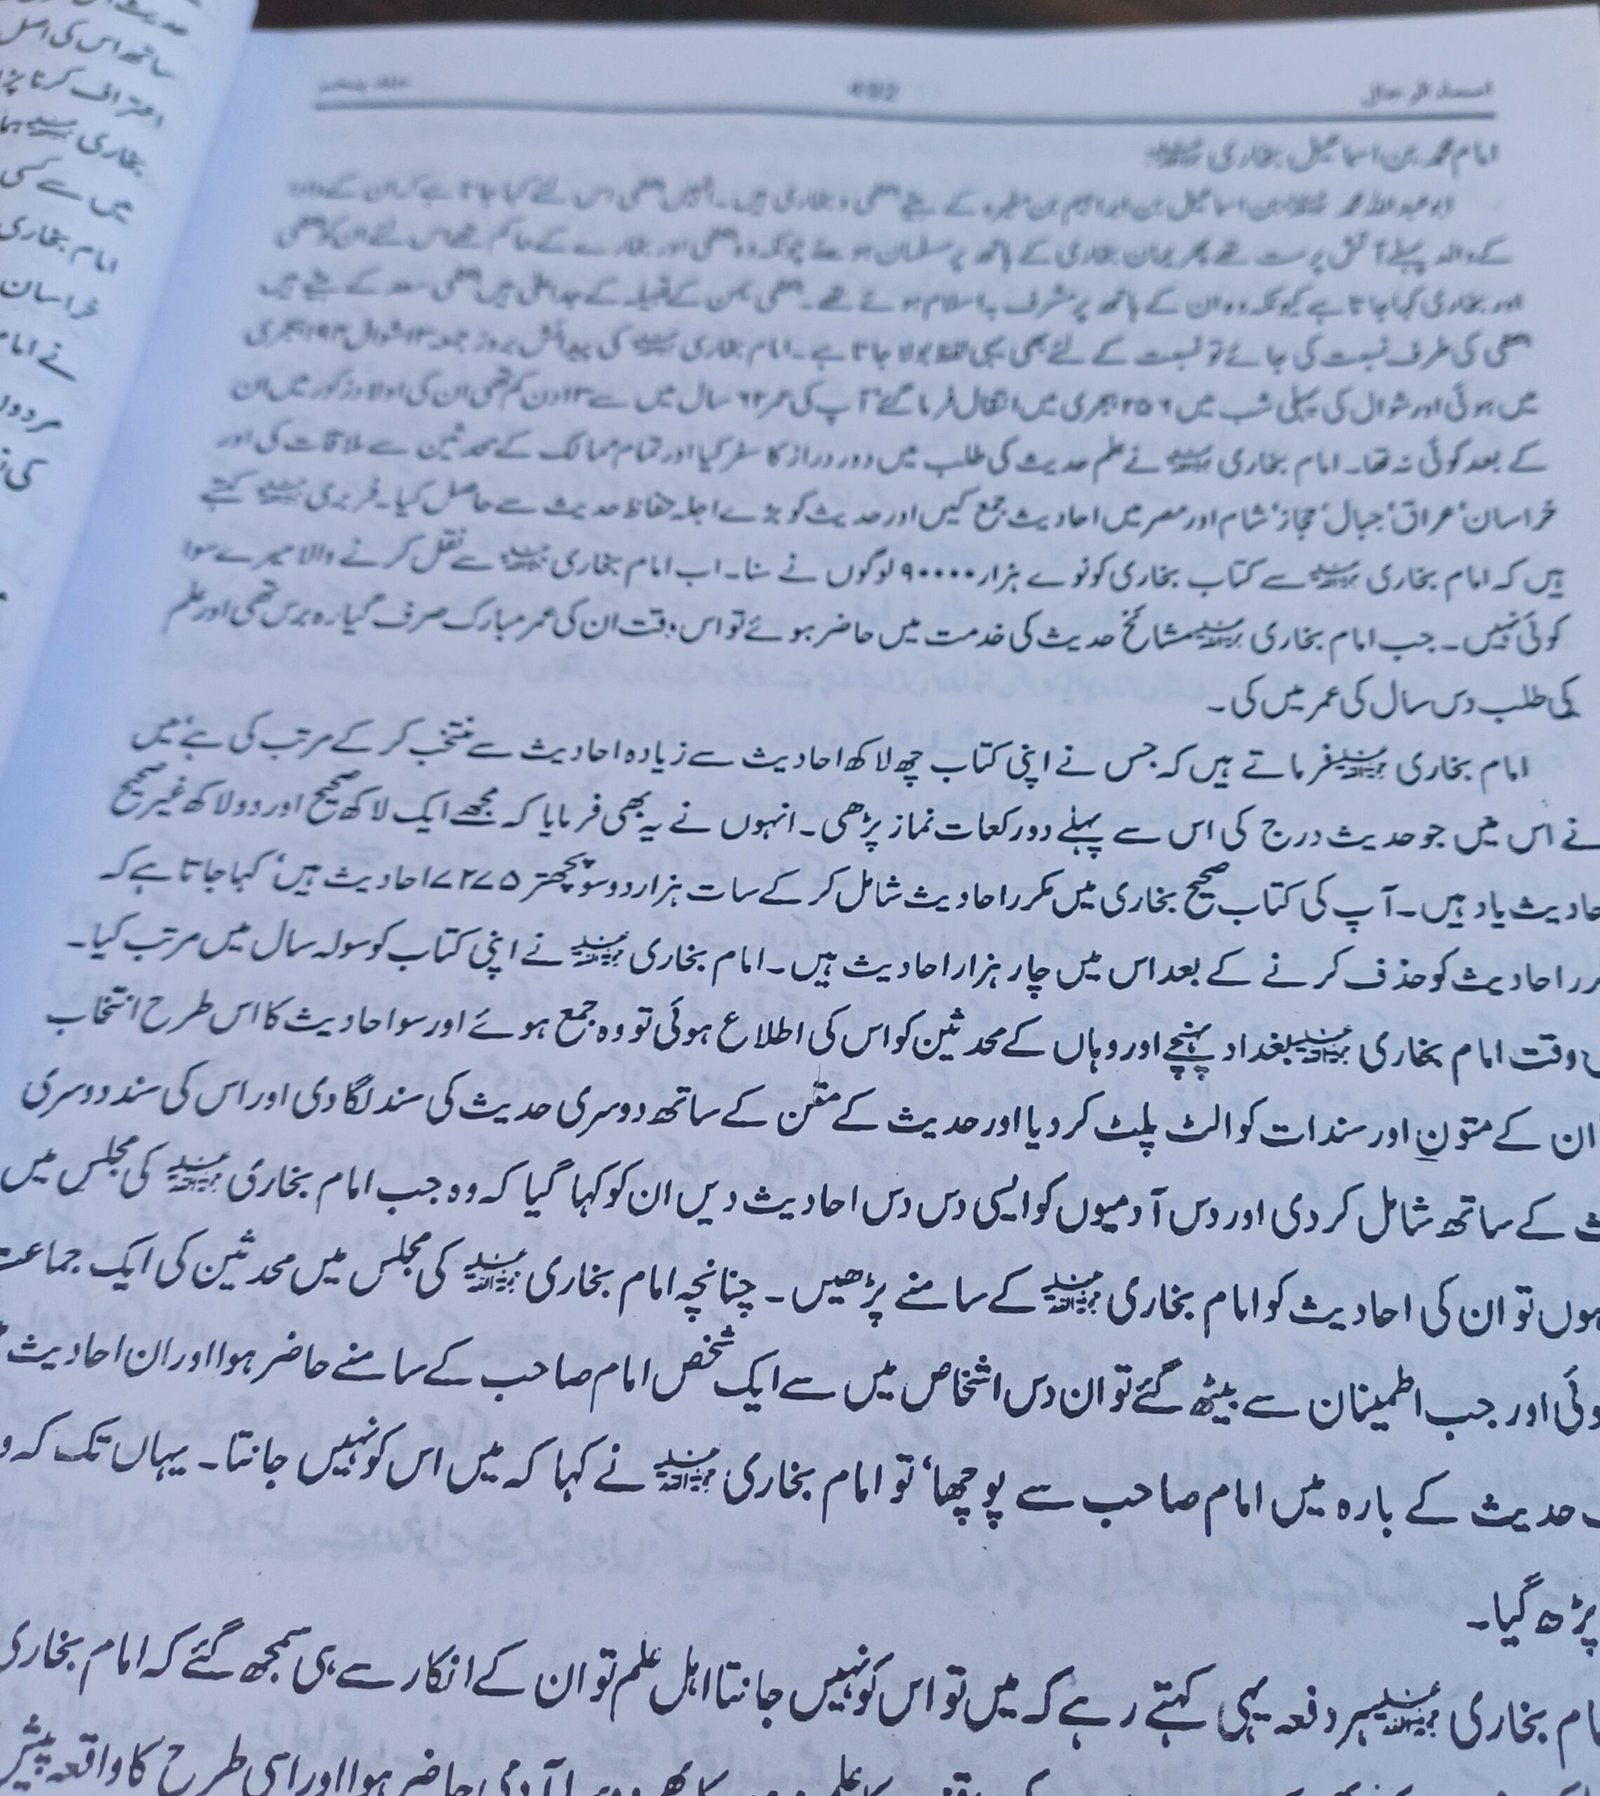 امام محمد بن اسماعیل بخاری رحمۃ اللہ علیہ
ابوعبداللہ محمد بن اسماعیل بن ابراہیم بن مغیرہ کے بیٹے جعفی و بخاری ہیں۔ انہیں جعفی اس لئے کہا جاتا ہے کہ ان کے دادا
کے والد پہلے آتش پرست تھے پھر یمان بخاری کے ہاتھ پر مسلمان ہوئے چونکہ وہ جعفی اور بخارے کے حاکم تھے اس لئے ان کو جعفی
اور بخاری کہا جاتا ہے کیونکہ وہ ان کے ہاتھ پر مشرف بہ اسلام ہوئے تھے۔ جعفی یمن کے قبیلہ کے جد اعلیٰ ہیں جعفی سعد کے بیٹے ہیں
جعفی کی طرف نسبت کی جائے تو نسبت کے لئے بھی یہی لفظ بولا جاتا ہے۔ امام بخاری رحمۃ اللہ علیہ کی پیدائش بروز جمعہ ۱۳ شوال ۱۹۴ ہجری
میں ہوئی اور شوال کی پہلی شب میں ۲۵۶ ہجری میں انتقال فرما گئے آپ کی عمر ۶۲ سال میں سے ۱۳ دن کم تھی ان کی اولاد ذکور میں ان
کے بعد کوئی نہ تھا۔ امام بخاری رحمۃ اللہ علیہ نے علم حدیث کی طلب میں دور دراز کا سفر کیا اور تمام ممالک کے محدثین سے ملاقات کی اور
خراسان‘ عراق‘ جبال‘ حجاز‘ شام اور مصر میں احادیث جمع کیں اور حدیث کو بڑے اجلہ حفاظ حدیث سے حاصل کیا۔ فربری رحمۃ اللہ علیہ کہتے
ہیں کہ امام بخاری رحمۃ اللہ علیہ سے کتاب بخاری کو نوے ہزار ۹۰۰۰۰ لوگوں نے سنا۔ اب امام بخاری رحمۃ اللہ علیہ سے نقل کرنے والا میرے سوا
کوئی نہیں۔ جب امام بخاری رحمۃ اللہ علیہ مشائخ حدیث کی خدمت میں حاضر ہوئے تو اس وقت ان کی عمر مبارک صرف گیارہ برس تھی اور علم
کی طلب دس سال کی عمر میں کی۔
امام بخاری رحمۃ اللہ علیہ فرماتے ہیں کہ جس نے اپنی کتاب چھ لاکھ احادیث سے زیادہ احادیث سے منتخب کر کے مرتب کی ہے میں
نے اس میں جو حدیث درج کی اس سے پہلے دو رکعات نماز پڑھی۔ انہوں نے یہ بھی فرمایا کہ مجھے ایک لاکھ صحیح اور دو لاکھ غیر صحیح
حادیث یاد ہیں۔ آپ کی کتاب صحیح بخاری میں مکرر احادیث شامل کر کے سات ہزار دو سو پچھتر ۷۲۷۵ احادیث ہیں‘ کہا جاتا ہے کہ
رر احادیث کو حذف کرنے کے بعد اس میں چار ہزار احادیث ہیں۔ امام بخاری رحمۃ اللہ علیہ نے اپنی کتاب کو سولہ سال میں مرتب کیا۔
وقت امام بخاری رحمۃ اللہ علیہ بغداد پہنچے اور وہاں کے محدثین کو اس کی اطلاع ہوئی تو وہ جمع ہوئے اور سو احادیث کا اس طرح انتخاب
ان کے متون اور سندات کو الٹ پلٹ کر دیا اور حدیث کے متن کے ساتھ دوسری حدیث کی سند لگا دی اور اس کی سند دوسری
ث کے ساتھ شامل کر دی اور دس آدمیوں کو ایسی دس دس احادیث دیں ان کو کہا گیا کہ وہ جب امام بخاری رحمۃ اللہ علیہ کی مجلس میں
ہوں تو ان کی احادیث کو امام بخاری رحمۃ اللہ علیہ کے سامنے پڑھیں۔ چنانچہ امام بخاری رحمۃ اللہ علیہ کی مجلس میں محدثین کی ایک جماعت
وئی اور جب اطمینان سے بیٹھ گئے تو ان دس اشخاص میں سے ایک شخص امام صاحب کے سامنے حاضر ہوا اور ان احادیث
حدیث کے بارہ میں امام صاحب سے پوچھا‘ تو امام بخاری رحمۃ اللہ علیہ نے کہا کہ میں اس کو نہیں جانتا۔ یہاں تک کہ و
پڑھ گیا۔
ام بخاری رحمۃ اللہ علیہ ہر دفعہ یہی کہتے رہے کہ میں تو اس کو نہیں جانتا اہل علم تو ان کے انکار سے ہی سمجھ گئے کہ امام بخاری
آدمی حاضر ہوا اور اسی طرح کا واقعہ پیش
ساتھ اس کی اصل
اعتراف کرنا پڑ
بخاری رحمۃ اللہ علیہ
میں سے کسی
امام بخاری
خراسان
نے امام
مردوں
کی